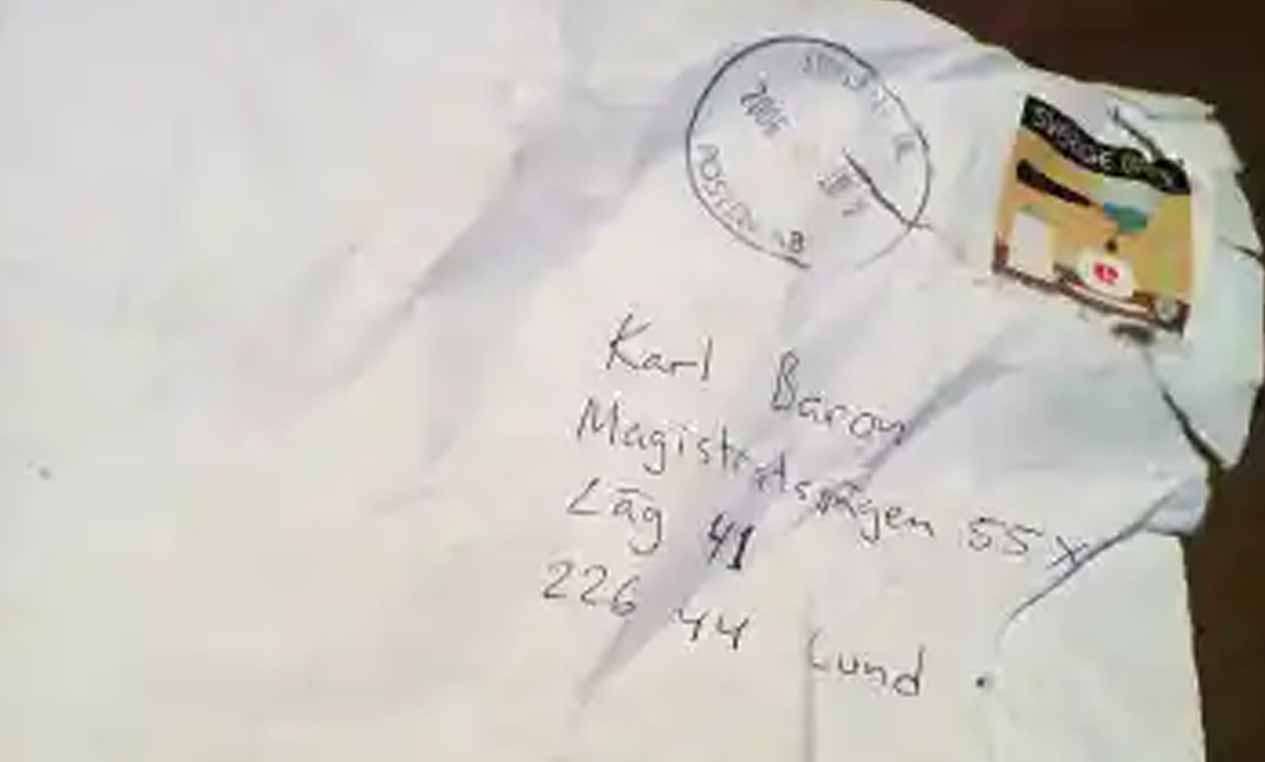 2005
POSTEN AB
SVERIGE
Karl Baron
Magistratsvägen 55X
Läg 41
226 44 Lund